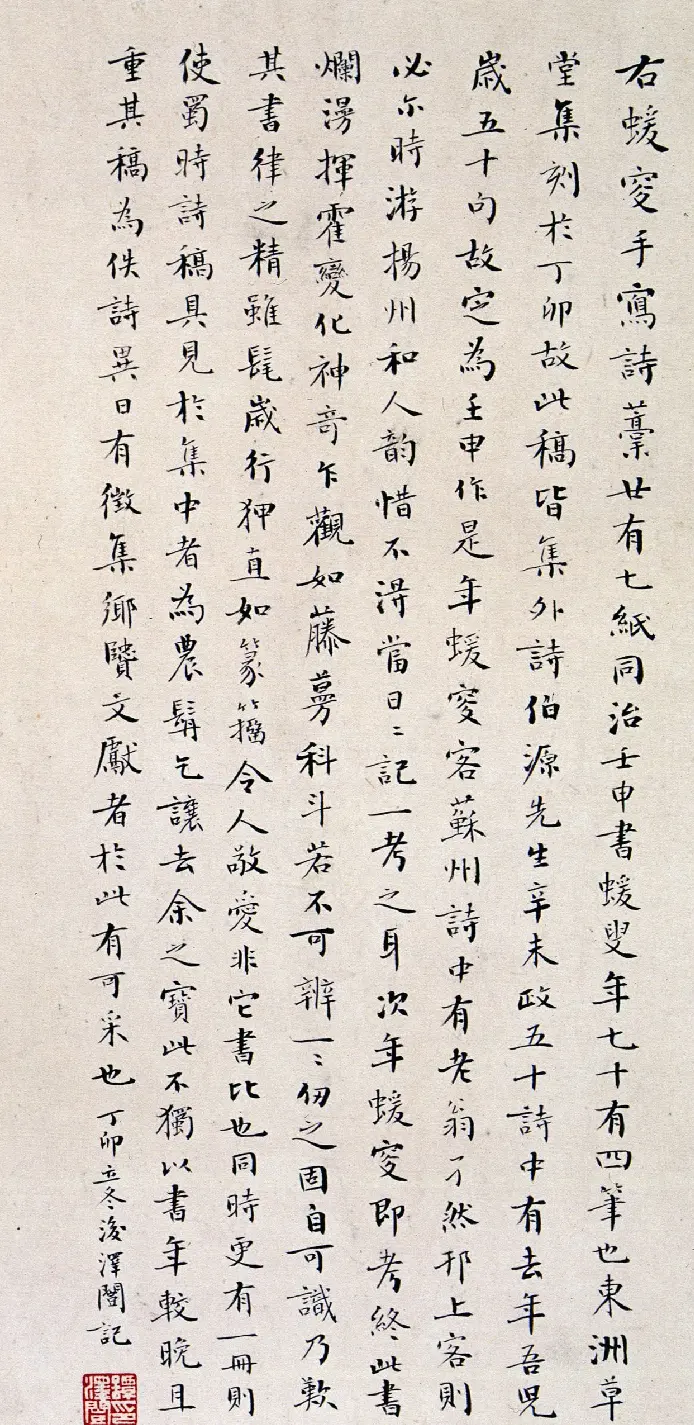 右蝯叜手寫詩藳廿有七紙同治壬申書蝯叟年七十有四筆也東洲草
堂集刻於丁卯故此稿皆集外詩伯源先生辛未政五十詩中有去年吾兄
歲五十句故定為壬申作是年蝯叜客蘇州詩中有老翁孑然邗上客則
必尔時游揚州和人韵惜不淂當日〻記一考之耳次年蝯叜即考終此書
爛漫揮霍變化神奇乍觀如藤蔓科斗若不可辨一〻仞之固自可識乃歎
其書律之精雖髦歲行狎直如篆籀令人敬愛非它書比也同時更有一冊則
使蜀時詩稿具見於集中者為農髯乞讓去余之寶此不獨以書年較晚且
重其稿為佚詩異日有徵集鄉賢文獻者於此有可采也丁卯立冬後澤闓記
譚澤闓印